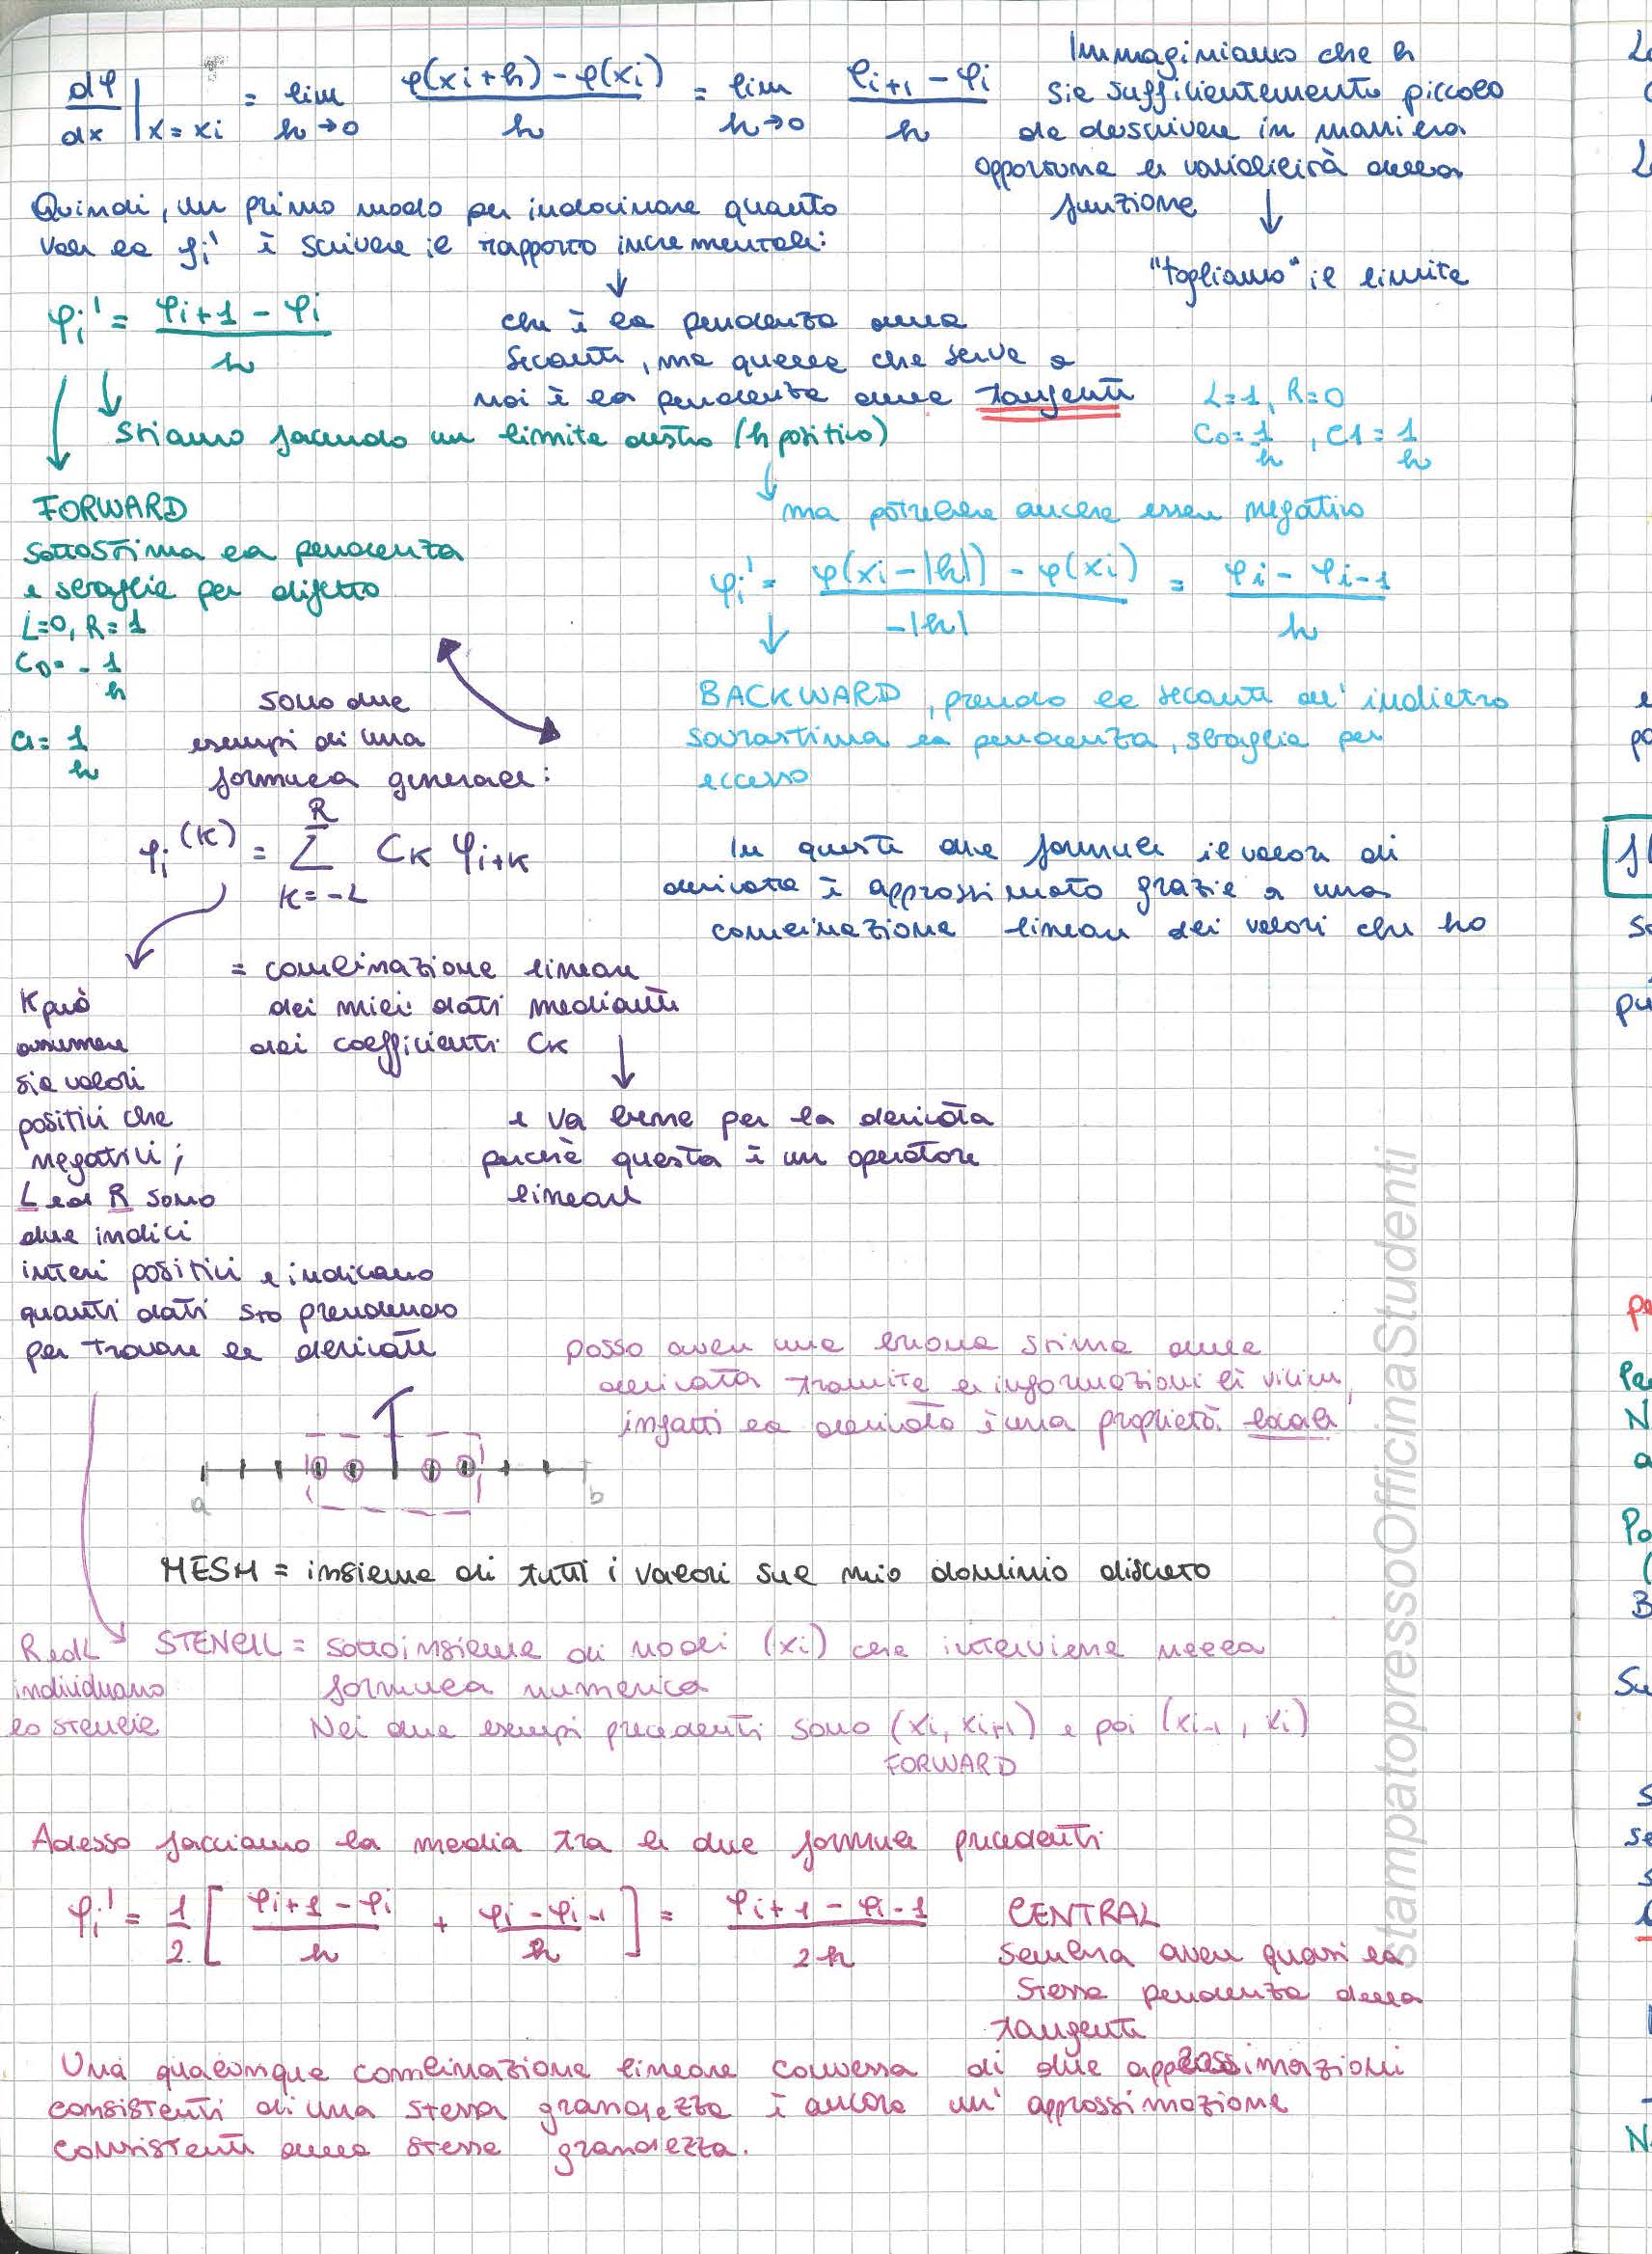 dφ/dx |x=xi = lim h→0 φ(xi+h) - φ(xi) / h = lim h→0 φi+1 - φi / h
Immaginiamo che h
sia sufficientemente piccolo
da descrivere in maniera
opportuna la variabilità della
funzione ↓
"togliamo" il limite
Quindi, un primo modo per indovinare quanto
vale la φi' è scrivere il rapporto incrementale:
↓
φi' = φi+1 - φi / h
che è la pendenza della
secante, ma quella che serve a
noi è la pendenza della tangente
Stiamo facendo un limite destro (h positivo)
L=1, R=0
C0= 1/h , C1= 1/h
ma potrebbe anche essere negativo
φi' = φ(xi-|h|) - φ(xi) / -|h| = φi - φi-1 / h
FORWARD
sottostima la pendenza
e sbaglia per difetto
L=0, R=1
C0= - 1/h
C1= 1/h
BACKWARD, prendo la secante all'indietro
sovrastima la pendenza, sbaglia per
eccesso
sono due
esempi di una
formula generale:
φi^(K) = Σ K=-L R CK φi+K
In queste due formule il valore di
derivata è approssimato grazie a una
combinazione lineare dei valori che ho
= combinazione lineare
dei miei dati mediante
dei coefficienti CK
↓
e va bene per la derivata
perché questa è un operatore
lineare
K può
assumere
sia valori
positivi che
negativi;
L ed R sono
due indici
interi positivi e indicano
quanti dati sto prendendo
per trovare la derivata
posso avere una buona stima della
derivata tramite le informazioni lì vicine,
infatti la derivata è una proprietà locale
a b
MESH = insieme di tutti i valori sul mio dominio discreto
R ed L
individuano
lo stencil
STENCIL = sottoinsieme di nodi (xi) che interviene nella
formula numerica
Nei due esempi precedenti sono (xi, xi+1) e poi (xi-1, xi)
FORWARD
Adesso facciamo la media tra le due formule precedenti
φi' = 1/2 [ φi+1 - φi / h + φi - φi-1 / h ] = φi+1 - φi-1 / 2h
CENTRAL
sembra avere quasi la
stessa pendenza della
tangente
Una qualunque combinazione lineare convessa di due approssimazioni
consistenti di una stessa grandezza è ancora un'approssimazione
consistente della stessa grandezza.
stampatopressoOfficinaStudenti